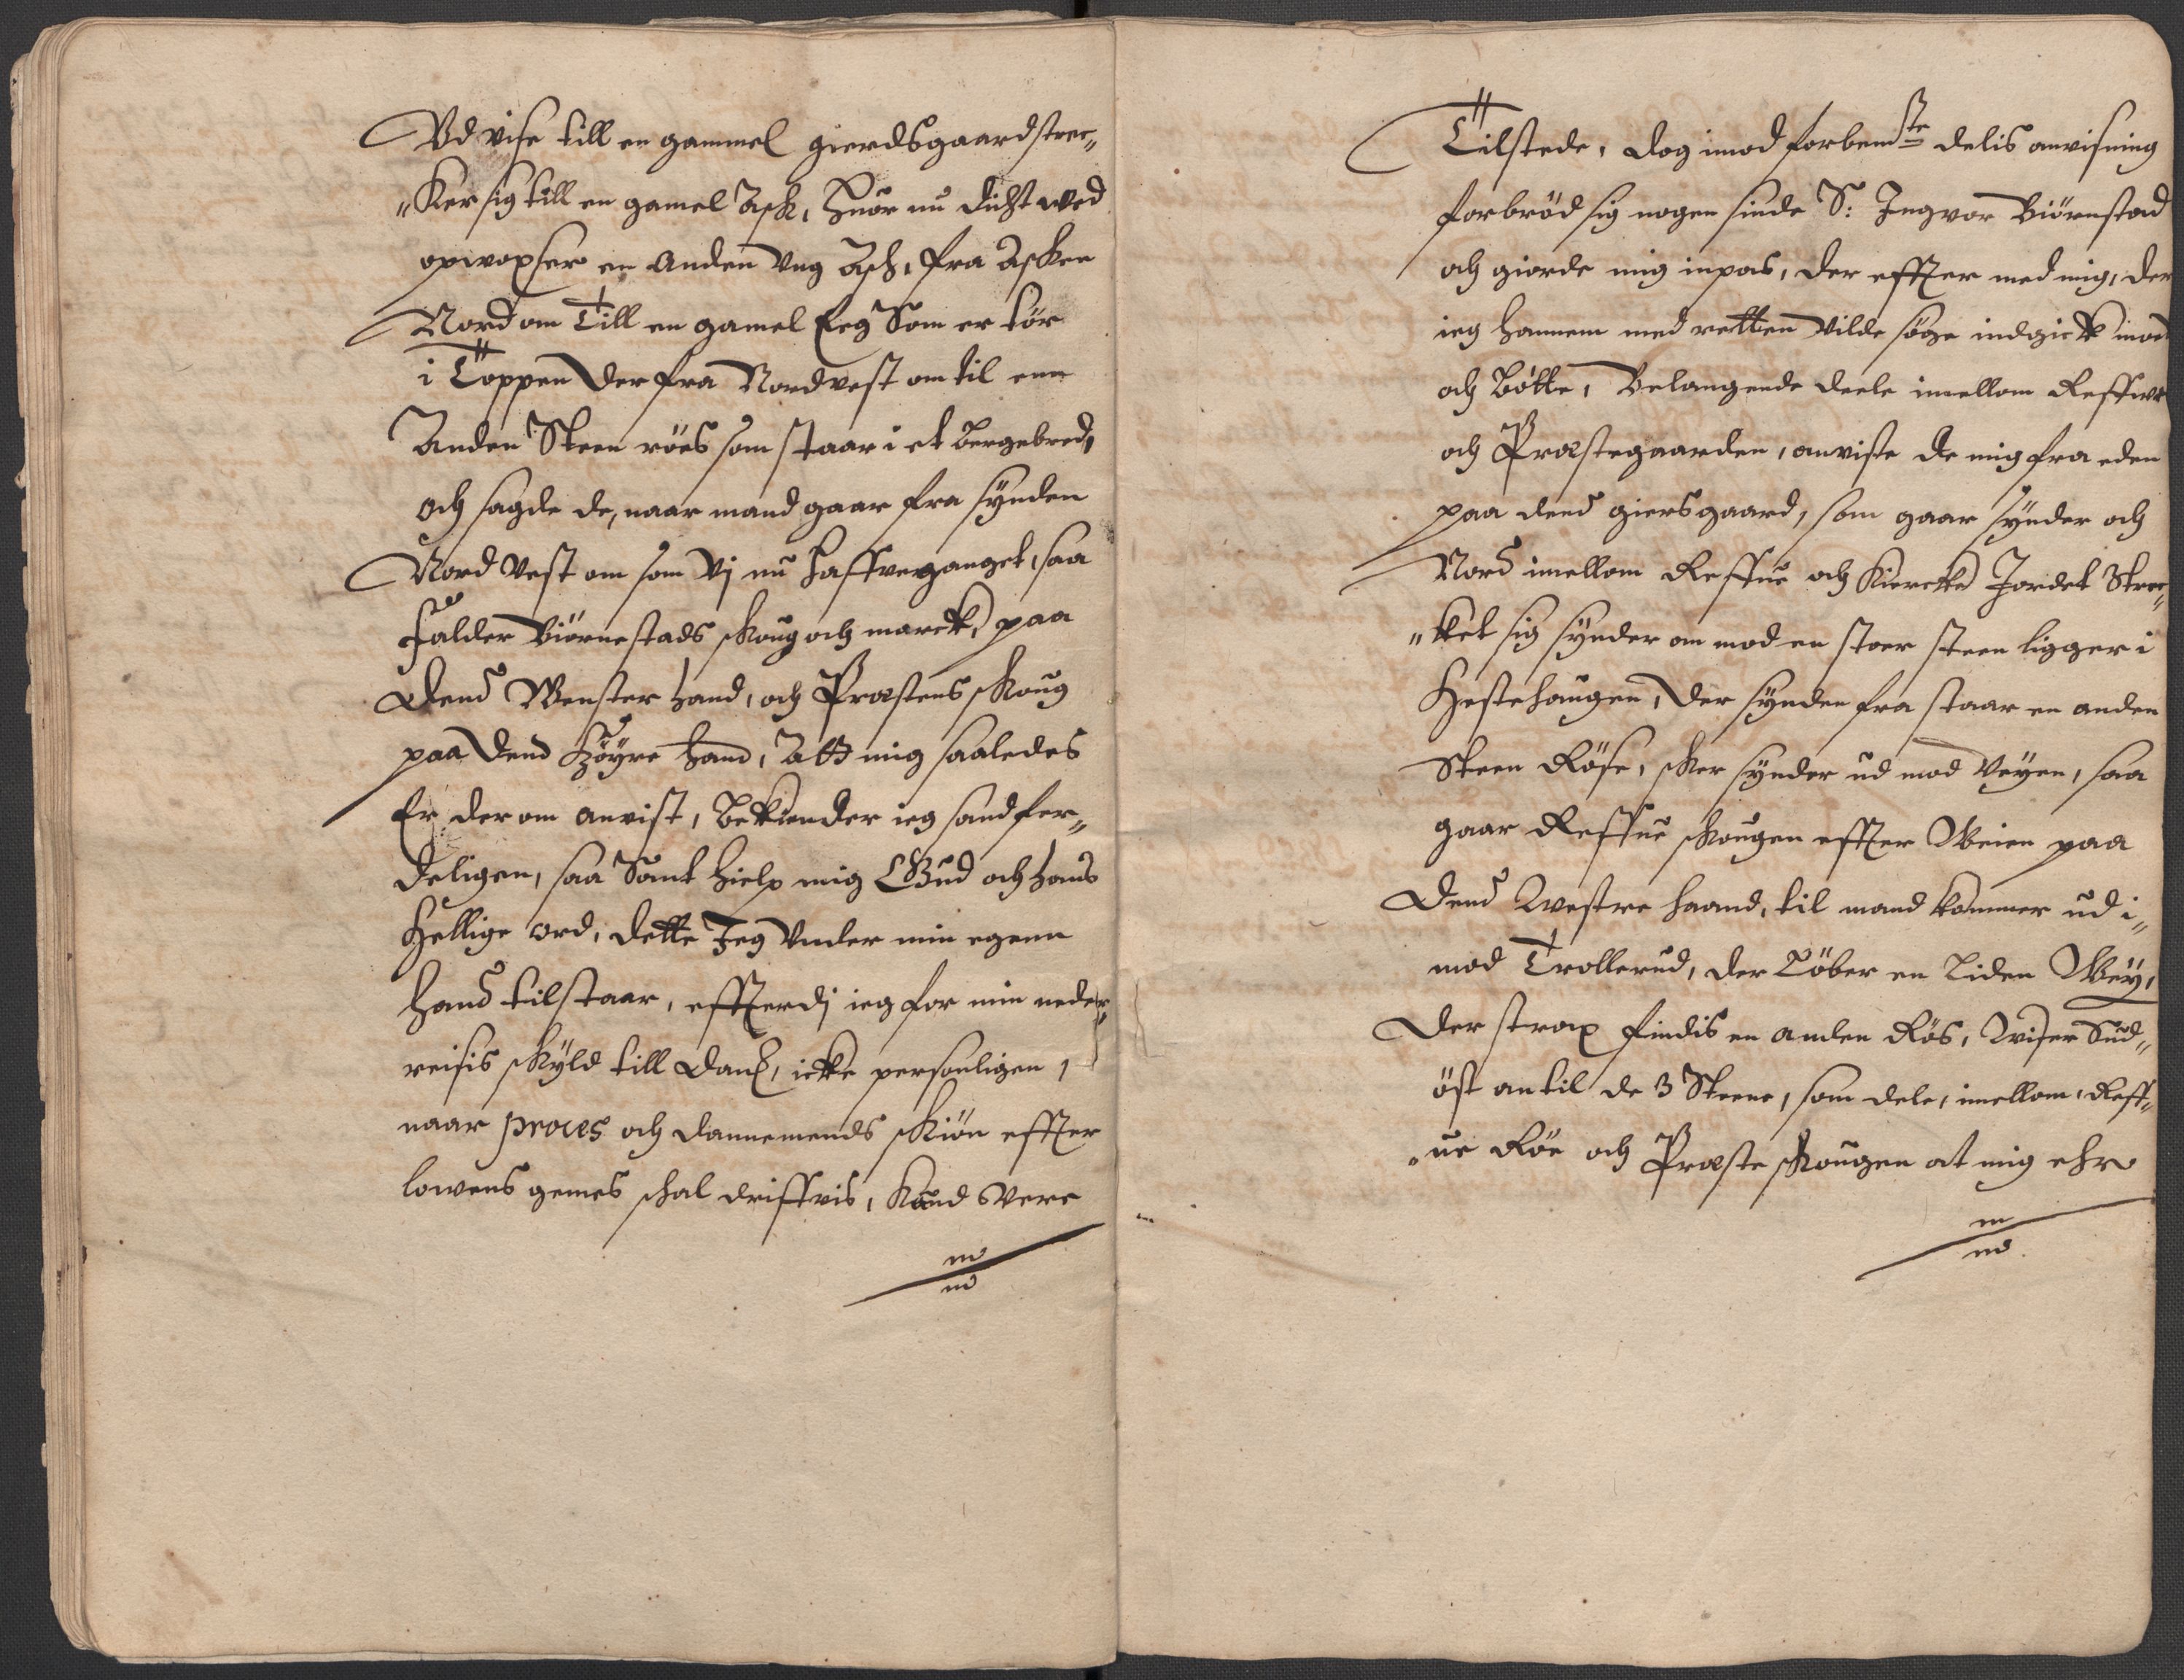 Vdvise till en gammel gierdsgaard strec„
„ker sig till en gamel Ask, Huor nu dicht wed
opvoxser en Anden Vng Ask, fra Asken
Nord om Till en gamel Eeg Som er tör
i Toppen Der fra Nordvest om til enn
Anden Steen röes som staar i et bergebred,
och sagde de, naar mand gaar fra synden
Nord Vest om som Vj nu haffver ganget, saa
falder Biörnestads skoug och marck, paa
Dend Wenster hand, och Præstens skoug
paa Dend Höyre hand, Att mig saaledes
Er der om anvist, bekiender ieg sandfer„
deligen, saa Sant hielp mig Gud och hans
Hellige ord, dette Jeg Vnder min egenn
Hand tilstaar, effterdj ieg for min neder„
reisis skyld till Danm, icke personligen,
naar proces och dannemends skiön effter
lowens gemes skal driffvis, Kand Vere
Tilstede, dog imod forbemte delis anvisning
forbröd sig nogen sinde S: Jngvor Biörnstad
och giorde mig inpas, der effter med mig, der
ieg hannem med retten Vilde söge indgick mod
och bötte, Belangende deele imellom Reffwe
och Præstegaarden, anviste de mig fra eden
paa dend giersgaard, som gaar synder och
Nord imellom Reffue och Kiercke Jordet Strec„
„ket sig synder om mod en stoer steen ligger i
Hestehaugen, Der synden fra staar en anden
Steen Röse, sker synder ud mod Veyen, saa
gaar Reffue skougen effter Weien paa
Dend Westre haand, til mand kommer ud i„
mod Trollerud, der Löber en Liden Wey,
Der strax findis en anden Rös, Wiser Sud„
öst an til de 3 Steene, som dele, imellom Reff„
„ue Röe och Præste skougen at mig ehro